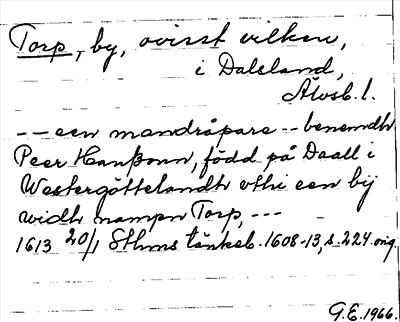 Torp, by, ovisst vilken,
i Dalsland,
Älvsb. l.
-- een mandråpare -- benemdh
Peer Hanßonn, född på Daall i
Westergöttelandh vthi een bij
widh nampn Torp, ---
1613 20/1 Sthms tänkeb. 1608-13, s. 224 orig.
G.E. 1966.